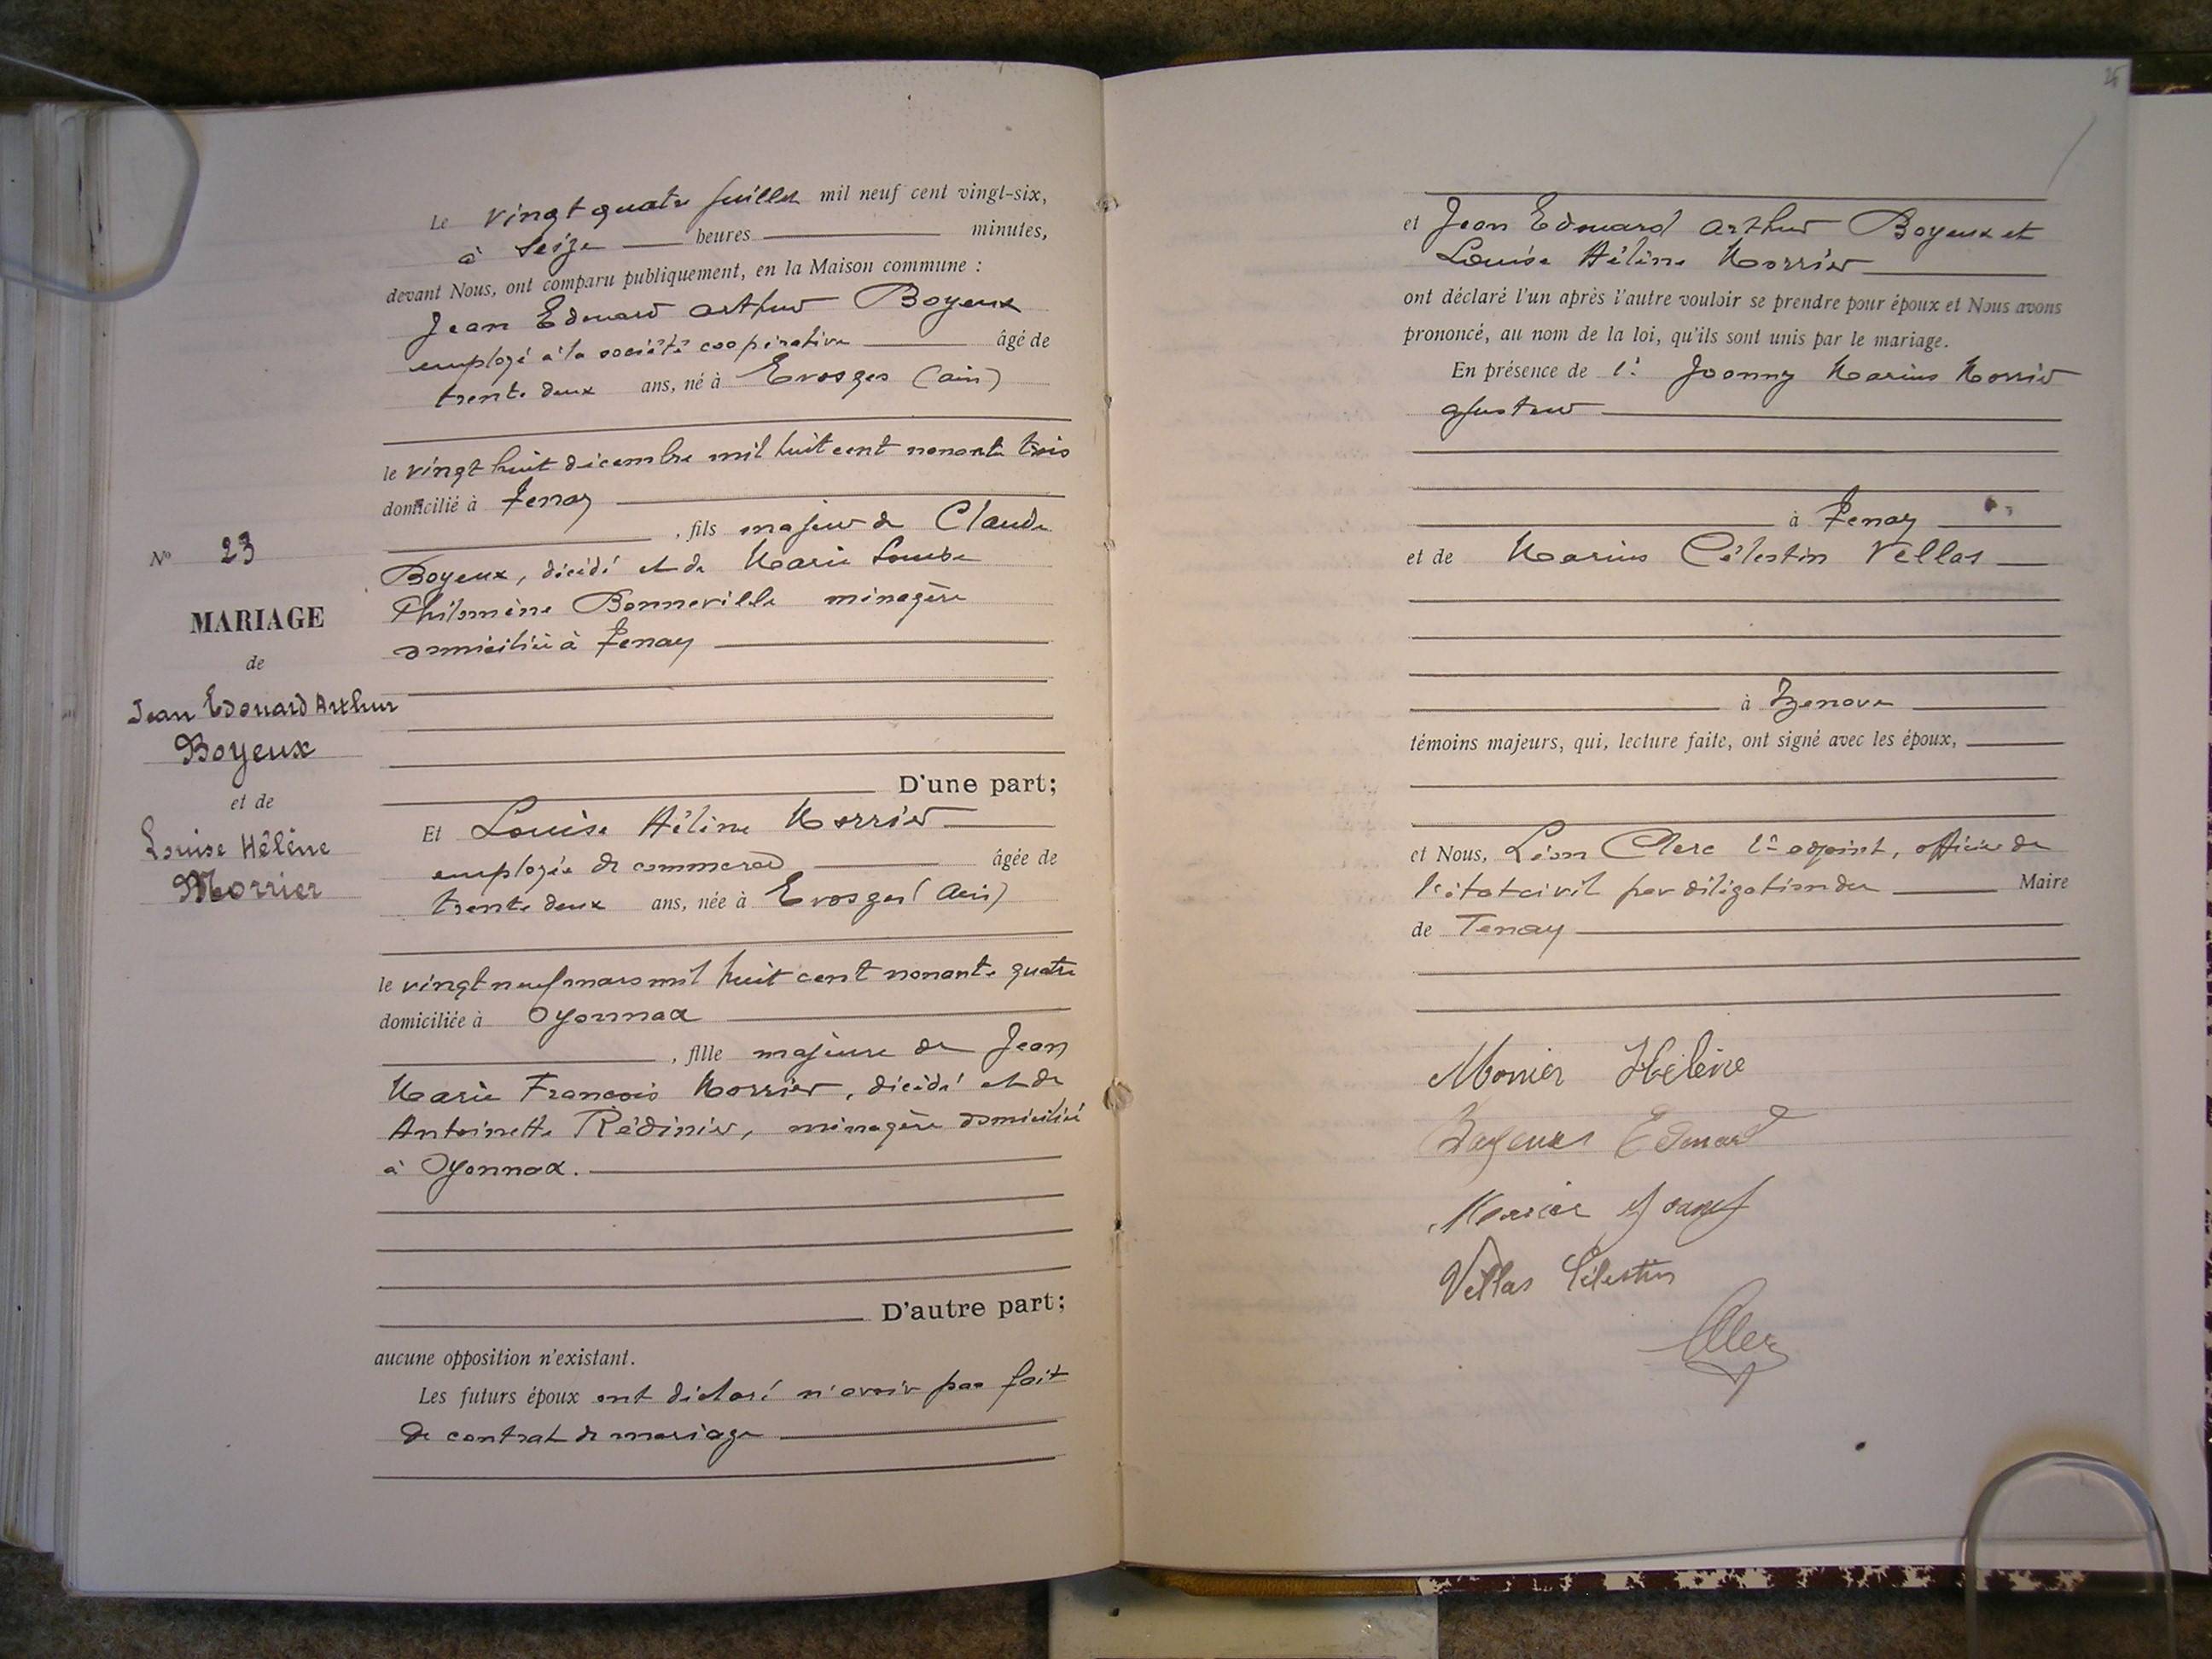 Le vingt quatre juillet mil neuf cent vingt-six,
à seize heures minutes,
devant Nous, ont comparu publiquement, en la Maison commune :
Jean Edouard Arthur Boyeux
employé à la société coopérative âgé de
trente deux ans, né à Evosges (ain)
le vingt huit décembre mil huit cent nonante trois
domicilié à Tenay
, fils majeur de Claude
Boyeux, décédé et de Marie Louise
Philomène Bonneville ménagère
domiciliée à Tenay
D'une part;
N° 23
MARIAGE
de
Jean Edouard Arthur
Boyeux
et de
Louise Hélène
Morrier
Et Louise Hélène Morrier
employée de commerce âgée de
trente deux ans, née à Evosges (Ain)
le vingt neuf mars mil huit cent nonante quatre
domiciliée à Oyonnax
, fille majeure de Jean
Marie François Morrier, décédé et de
Antoinette Rédinier, ménagère domiciliée
à Oyonnax.
D'autre part;
aucune opposition n'existant.
Les futurs époux ont déclaré n'avoir pas fait
de contrat de mariage
et Jean Edouard Arthur Boyeux et
Louise Hélène Morrier
ont déclaré l'un après l'autre vouloir se prendre pour époux et Nous avons
prononcé, au nom de la loi, qu'ils sont unis par le mariage.
En présence de Joanny Marius Morrier
ajusteur
à Tenay
et de Marius Célestin Vellas
à
témoins majeurs, qui, lecture faite, ont signé avec les époux,
et Nous, Léon Clerc 1er adjoint, officier de
l'état civil par déligation du Maire
de Tenay
Morrier Hélène
Boyeux Edouard
Morrier
Vellas Célestin
Clerc